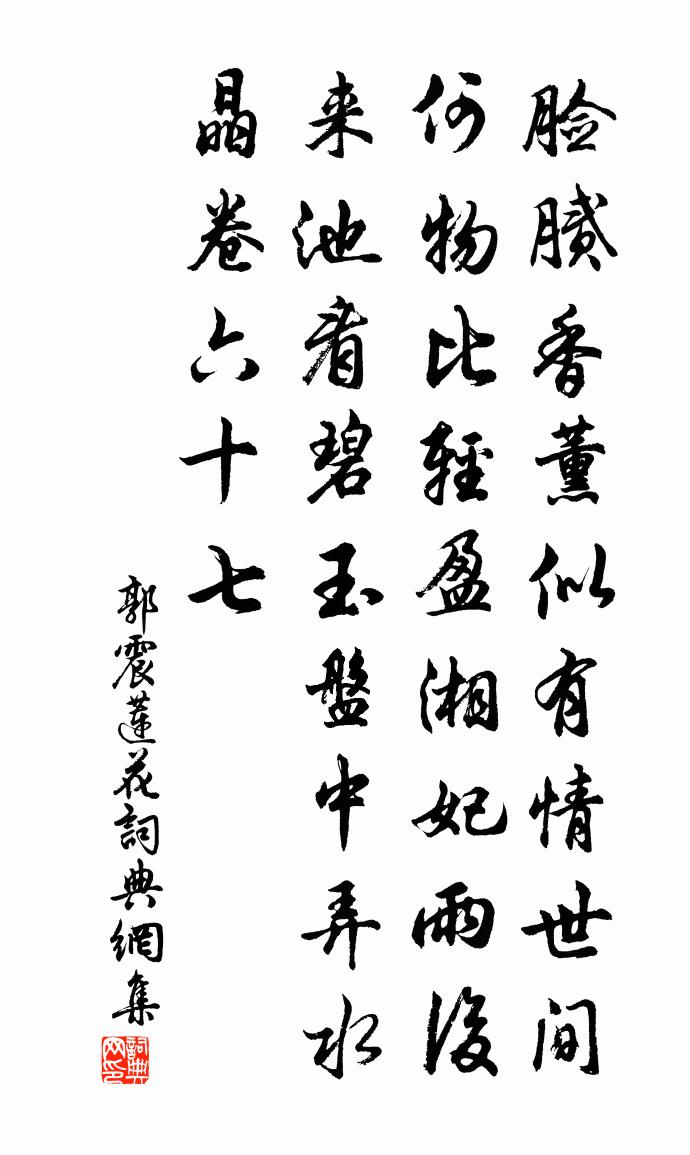 脸膩香薰似有情世间
何物比輕盈湘妃雨後
来池看碧玉盤中弄水
晶卷六十七
郭震蓮花詞典網集
詞典网印